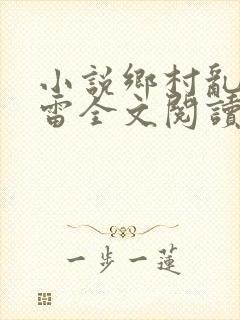 小說鄉村亂
雷全文閱讀
一步一蓮